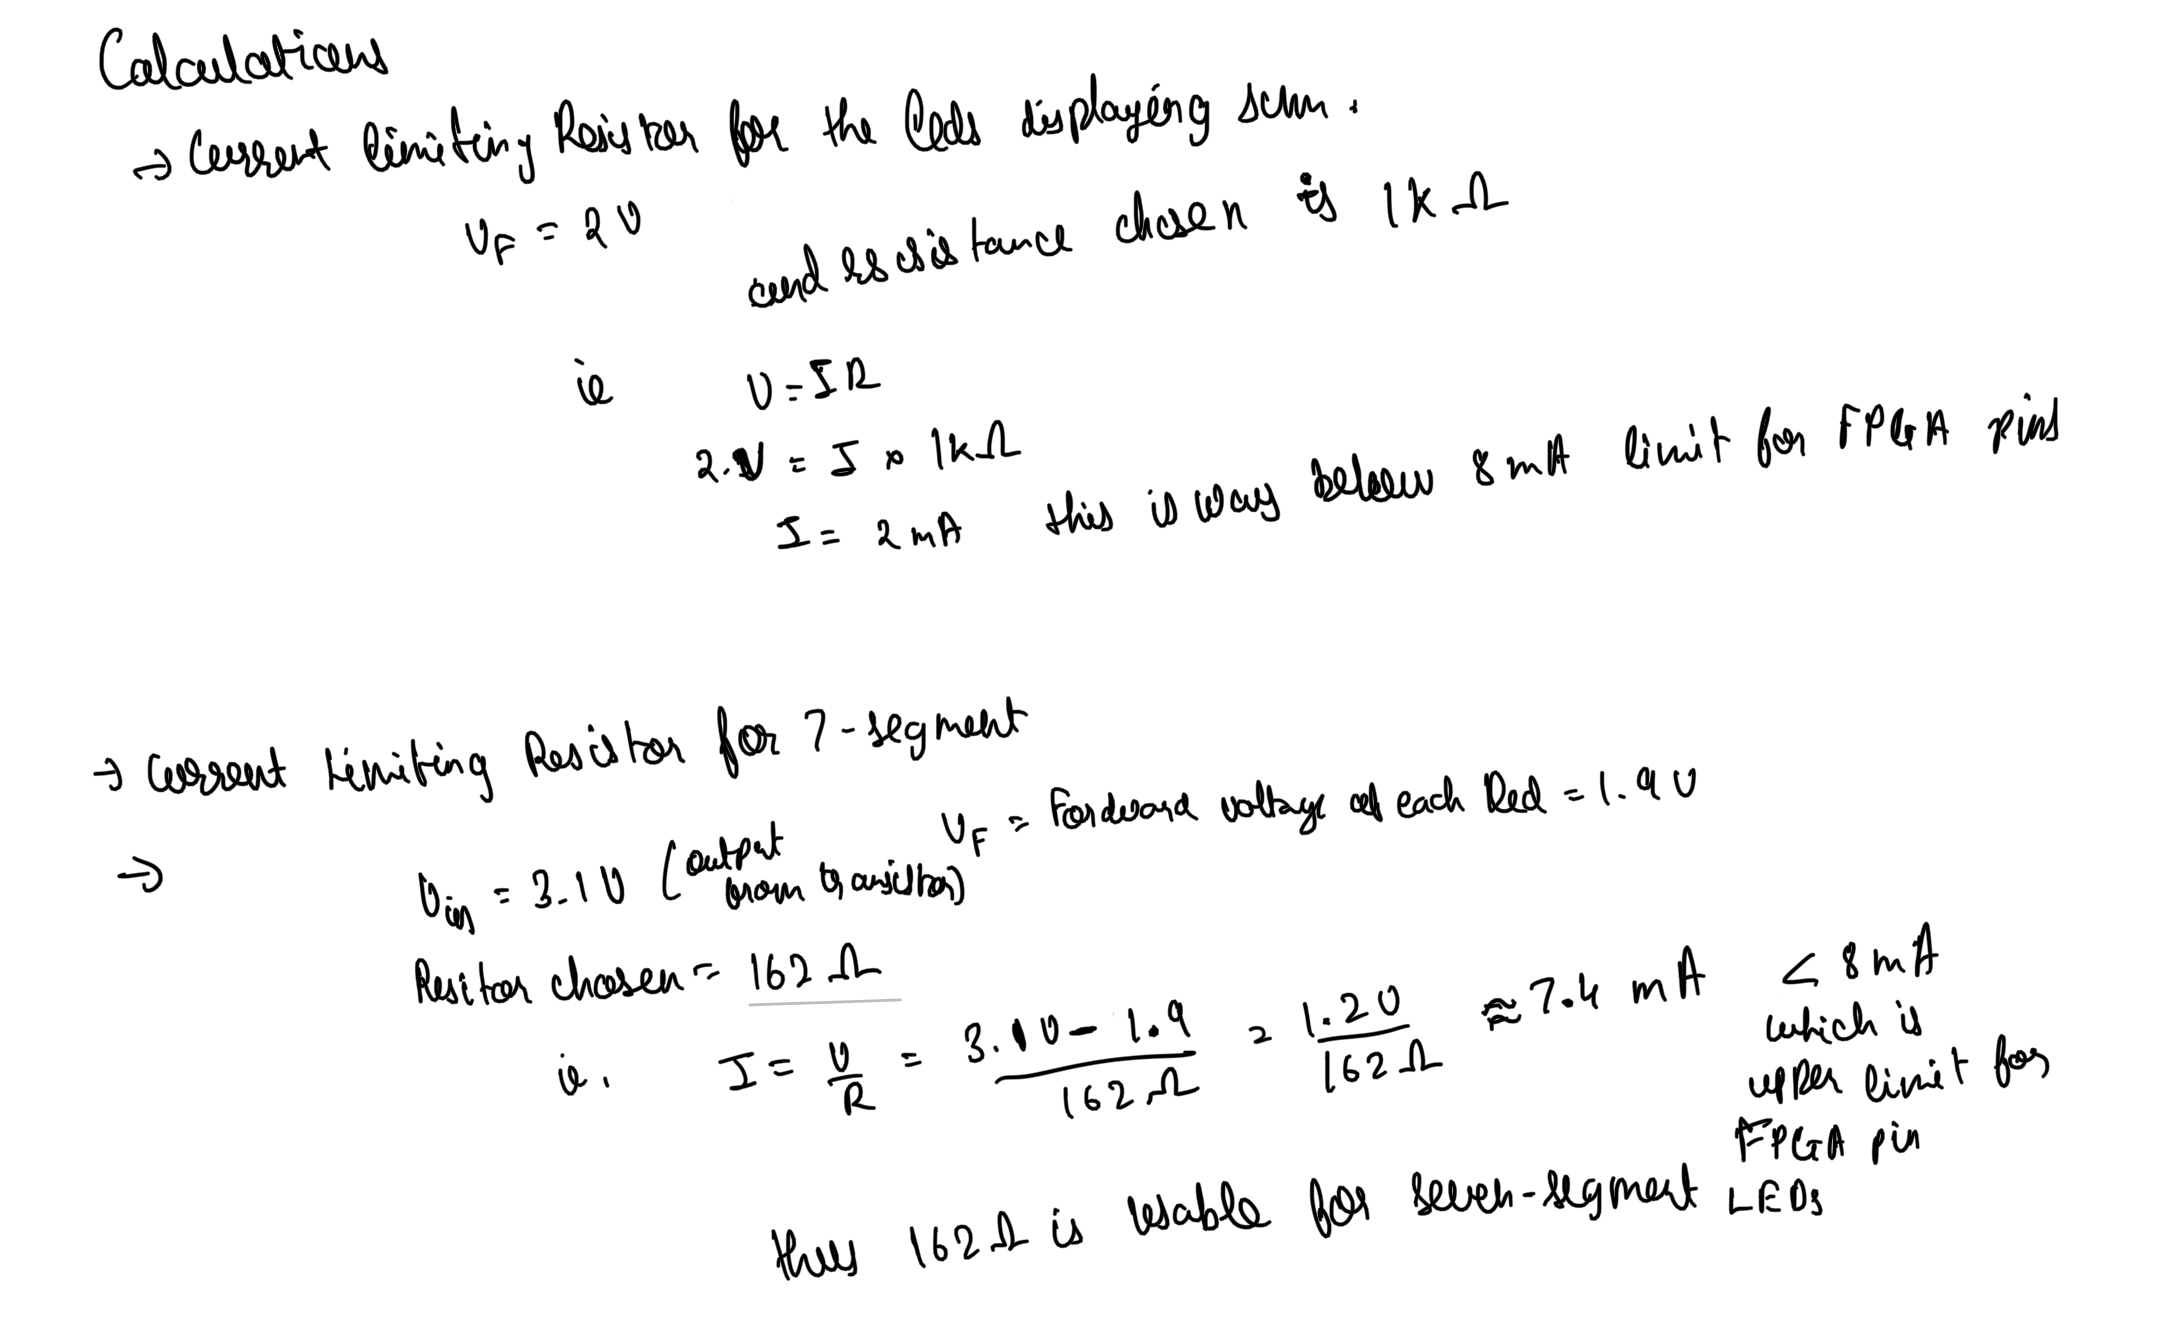 Calculations
→ Current limiting Resistor for the leds displaying sum.
VF = 2 V
and resistance chosen is 1k Ω
ie V = IR
2.V = I × 1kΩ
I = 2 mA this is way below 8 mA limit for FPGA pins
→ Current Limiting Resistor for 7-segment
→ Vin = 3.1 V (output from transistor) VF = Forward voltage of each led = 1.9 V
Resitor chosen = 162 Ω
ie. I = V/R = 3.1 V - 1.9 / 162 Ω = 1.2 V / 162 Ω ≈ 7.4 mA < 8 mA
which is
upper limit for
FPGA pin
thus 162 Ω is usable for seven-segment LEDs